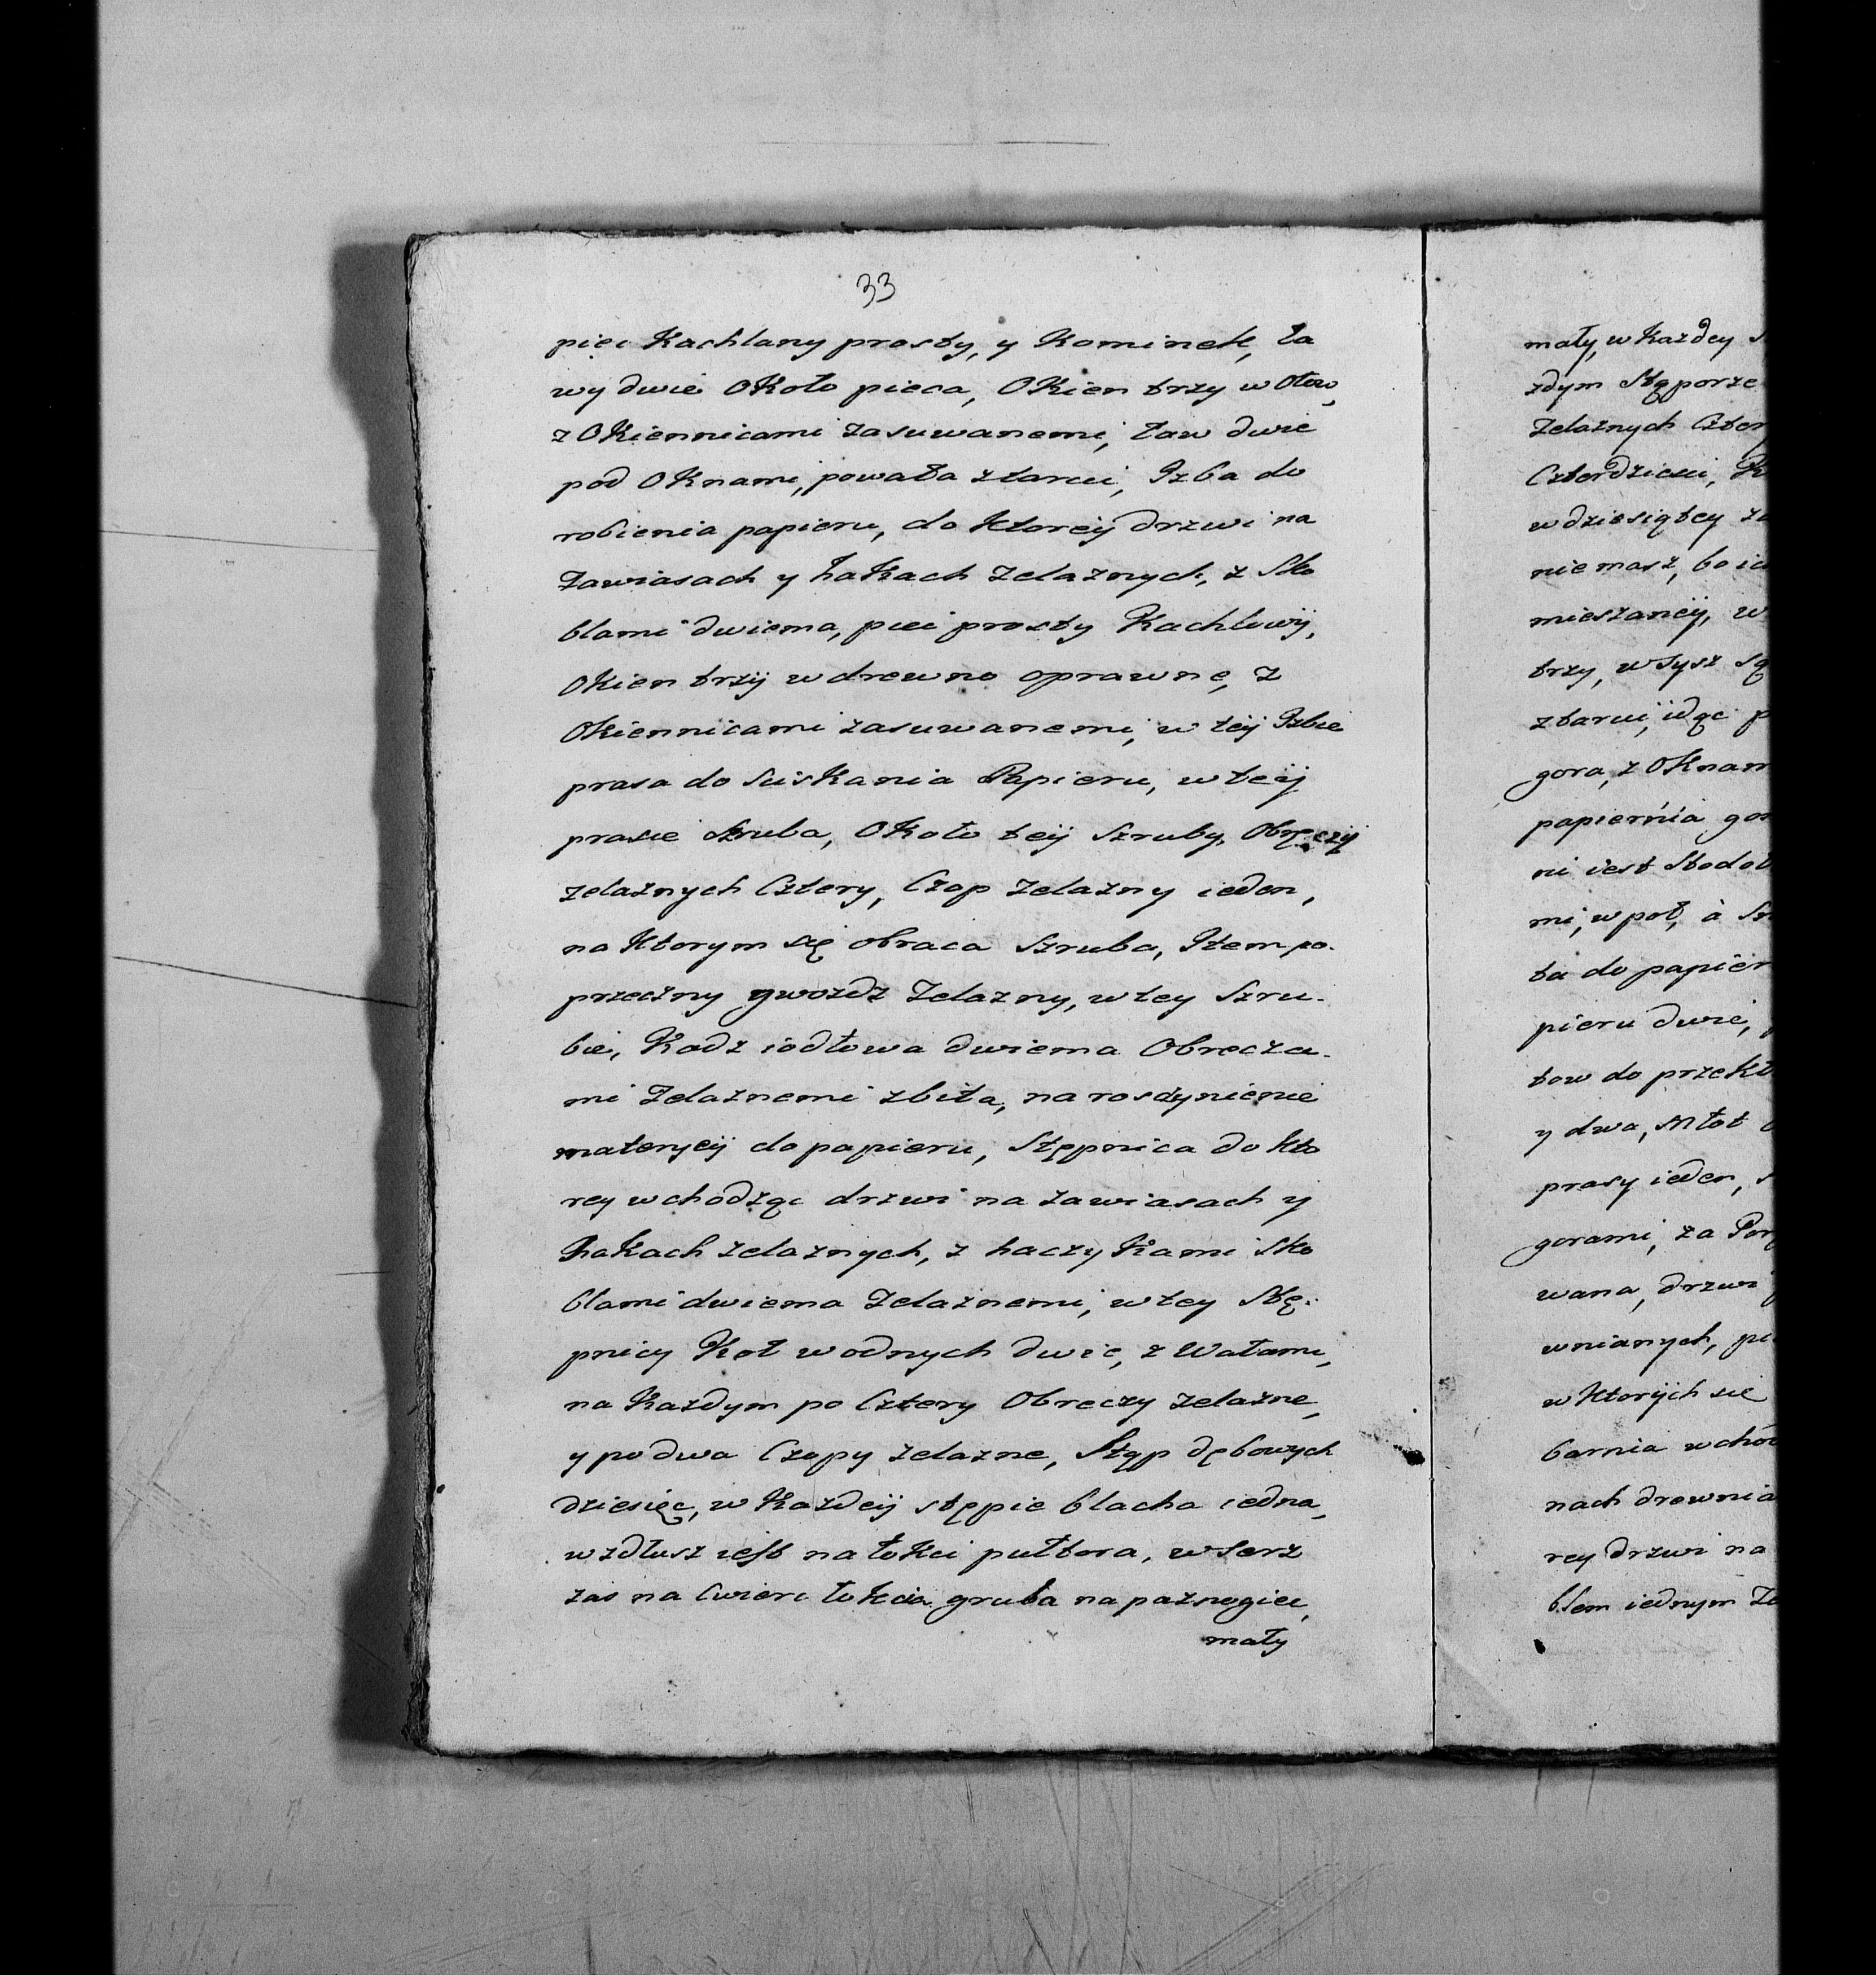 33
piec Kachlany prosty, y Kominek, ła
wy dwie około pieca, Okien trzy w ołow,
z Okiennicami zasuwanemi, ław dwie
pod Oknami, powała z tarcic, Izba do
robienia papieru, do ktoreÿ drzwi na
zawiasach y hakach żelaznych, z Sko
blami dwiema, piec prosty Kachlowÿ,
Okien trzÿ w drewno oprawne, z
Okiennicami zasuwanemi, w teÿ Izbie
prasa do suskania Papieru, w teÿ
prasie Szruba, Około teÿ Szruby, Obręczÿ
żelaznych Cztery, Czop żelazny ieden,
na ktorym się obraca Szruba, Item po-
przeczny gwozdz żelazny, w tey Szru-
bie, Kadz iodłowa dwiema Obrecza-
mi żelaznemi zbita, na rosczynienie
materyeÿ do papieru, Stępnica do kto
rey wchodząc drzwi na zawiasach y
hakach żelaznych, z haczykami Sko
blami dwiema żelaznemi, w tey Stę-
pnicy Koł wodnych dwie, z Wałami,
na Każdym po Cztery Obreczy żelazne,
y po dwa Czopy żelazne, Stąp dębowych
dziesięc, w Każdeÿ stępie blacha iedna,
wzdłusz iest na łokci pułtora, wserz
zas na Cwierc łokcia gruba na paznogiec,
mały
mały, w Każdey
zdym Stąporze
żelaznych Czter
Czterdziesci,
w dziesiątey
nie masz, bo
mieszaneÿ, w
trzy, w sysz
z tarcic, idąc
gora, z Oknam
papiernia gor
ni iest Stodoł
mi, w poł, à
ta do papier
pieru dwie,
tow do przekł
y dwa, Młot
prasy ieden,
gorami, za
wana, drzwi
wnianych,
w ktorÿch sie
barnia wchod
nach drewnia
rey drzwi na
blem iednym